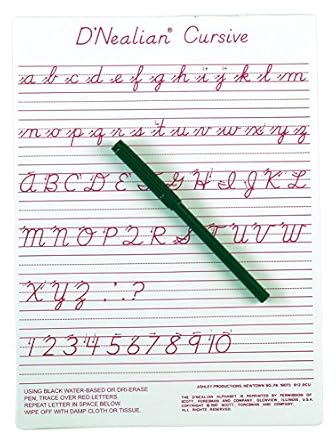 D'Nealian® Cursive
a b c d e f g h i j k l m
n o p q r s t u v w x y z
A B C D E F G H I J K L
M N O P Q R S T U V W
X Y Z . : . ?
1 2 3 4 5 6 7 8 9 10
USING BLACK WATER-BASED OR DRI-ERASE
PEN, TRACE OVER RED LETTERS.
REPEAT LETTER IN SPACE BELOW.
WIPE OFF WITH DAMP CLOTH OR TISSUE.
ASHLEY PRODUCTIONS, NEWTOWN SQ., PA. 19073
THE D'NEALIAN ALPHABET IS REPRINTED BY PERMISSION OF
SCOTT, FORESMAN AND COMPANY, GLENVIEW, ILLINOIS, U.S.A.